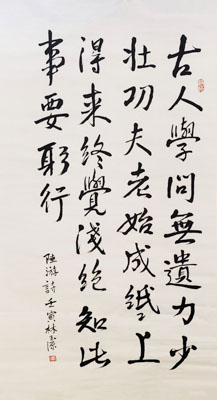 古人學問無遺力少
壯功夫老始成紙上
得来終覺淺絕知此
事要躬行
陸游詩壬寅林